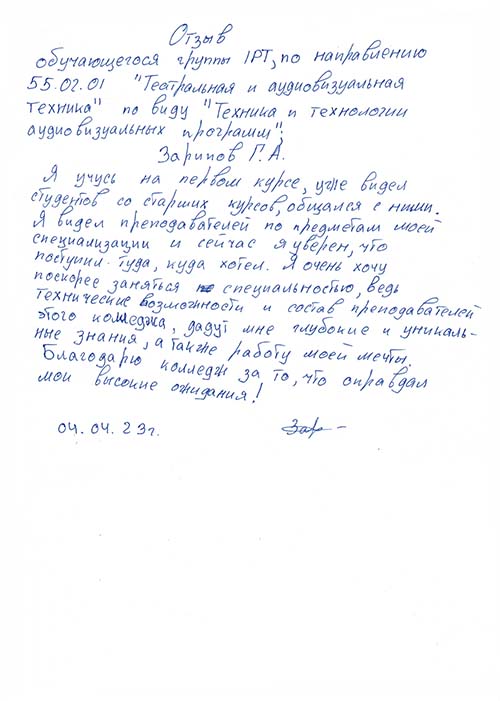 Отзыв
обучающегося группы 1РТ, по направлению
55.02.01 "Театральная и аудиовизуальная
техника" по виду "Техника и технологии
аудиовизуальных программ",
Зарипов Г.А.
Я учусь на первом курсе, уже видел
студентов со старших курсов, общался с ними.
Я видел преподавателей по предметам моей
специализации и сейчас я уверен, что
поступил туда, куда хотел. Я очень хочу
поскорее заняться специальностью, ведь
технические возможности и состав преподавателей
этого колледжа, дадут мне глубокие и уникаль-
ные знания, а также работу моей мечты.
Благодарю колледж за то, что оправдал
мои высокие ожидания!
04.04.23г. Зар